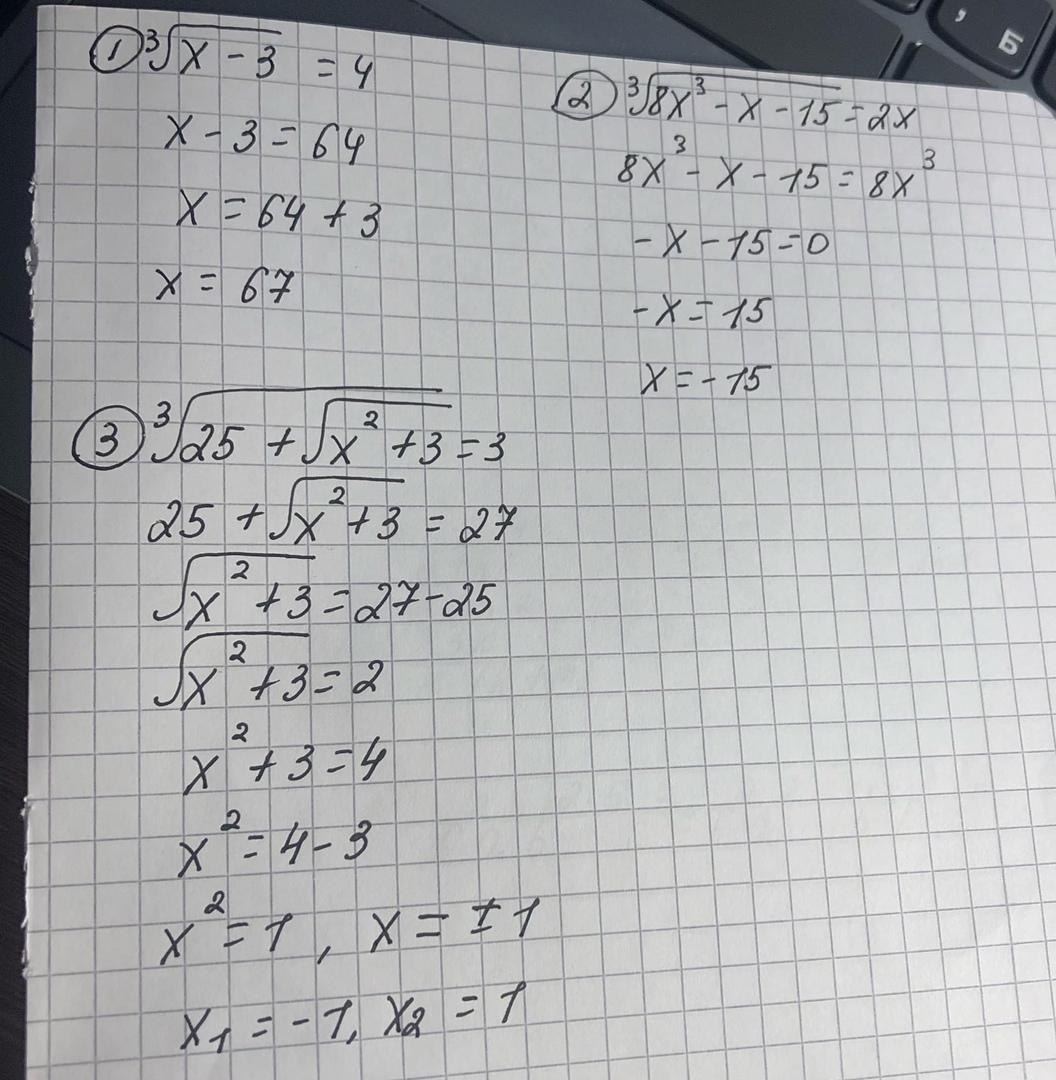 ① ∛(x - 3) = 4
x - 3 = 64
x = 64 + 3
x = 67
② ∛(8x³ - x - 15) = 2x
8x³ - x - 15 = 8x³
-x - 15 = 0
-x = 15
x = -15
③ ∛(25 + √(x² + 3)) = 3
25 + √(x² + 3) = 27
√(x² + 3) = 27 - 25
√(x² + 3) = 2
x² + 3 = 4
x² = 4 - 3
x² = 1 , x = ± 1
x₁ = -1, x₂ = 1
, Б